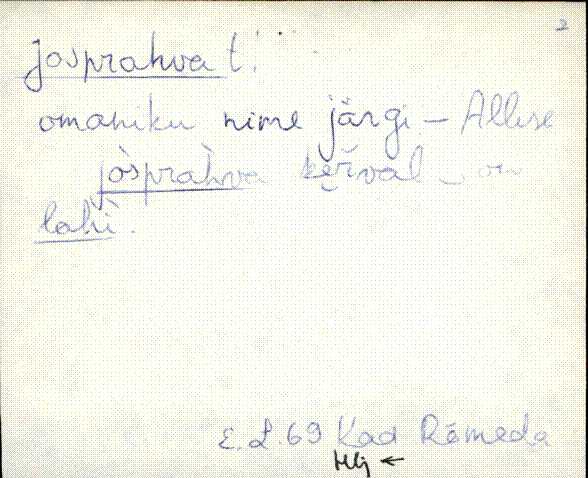 2
josprahva t.
omaniku nime järgi – Alluse
jòsprahva keřval on
lahì.
E. L. 69 Kad Rõmeda
Hlj ←